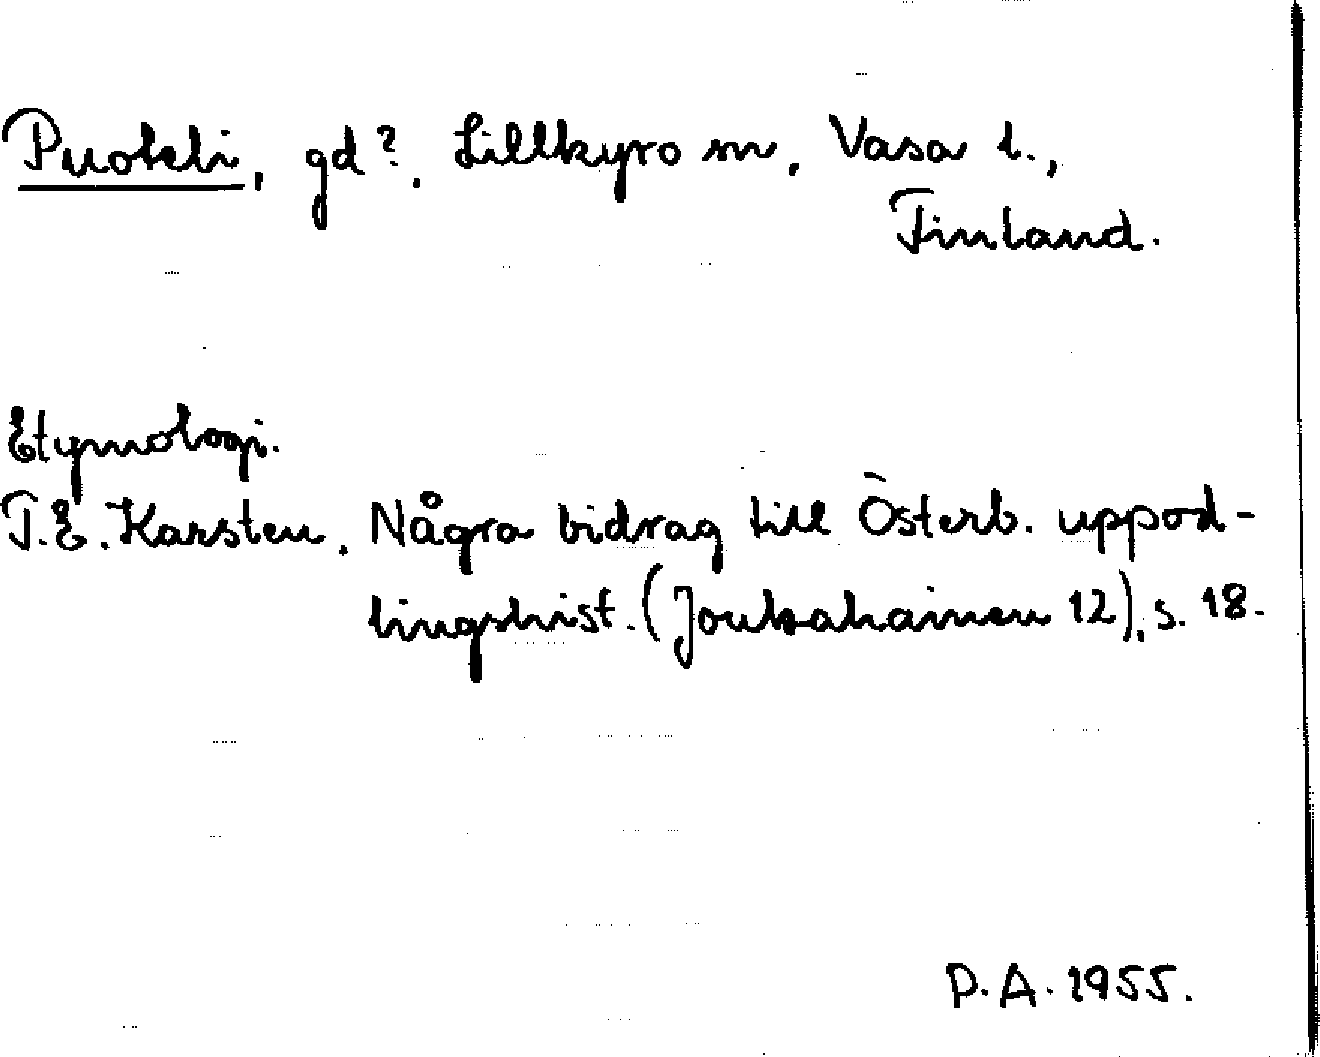 gd?, Lillkyro sn, Vasa l.,
Finland.
Etymologi.
T.E. Karsten, Några bidrag till Österb. uppod-
lingshist. (Joukahainen 12), s. 18.
P.A. 1955.